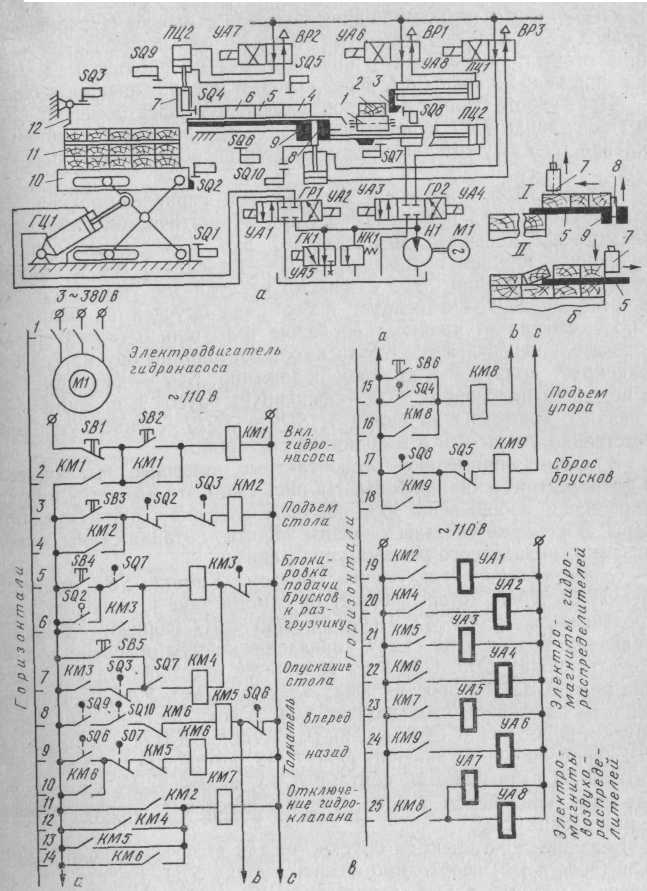 ПЦ2 УА7 ВР2 УА6 ВР1 ВР3
SQ9 SQ5 УА8 ПЦ1
SQ3 7 SQ4 6 5 4 1 2 3 SQ8 ПЦ2
12
11 SQ6 9 8 SQ7
10 SQ10
SQ2 ГР1 УА2 УА3 ГР2 УА4
ГЦ1 SQ1 УА1 ГК1 НК1 Н1 М1
УА5
а
I 7 8
5 9
II 7
5
Б
3 ~ 380 В
1
М1
Электродвигатель
гидронасоса
~ 110 В
SB1 SB2 КМ1
Вкл.
гидро-
насоса
2 КМ1 КМ1
3 SB3 SQ2 SQ3 КМ2
Подъем
стола
4 КМ2
5 SB4 SQ7 КМ3
Блоки-
ровка
подачи
брусков
к раз-
грузчику
SQ2
6 КМ3
SB5
7 КМ3 SQ3 SQ7 КМ4
Опускание
стола
8 SQ9 SQ10 КМ6 КМ5 SQ6
Толкатель
вперед
9 SQ6 SQ7 КМ5 КМ6
назад
10 КМ6 КМ7
11 КМ2
Отключе-
ние гидро-
клапана
12 КМ4
13 КМ5
14 КМ6
а b c
Горизонтали
а b c
15 SB6 КМ8
SQ4
Подъем
упора
16 КМ8
17 SQ8 SQ5 КМ9
Сброс
брусков
18 КМ9
~ 110 В
19 КМ2 УА1
20 КМ4 УА2
21 КМ5 УА3
22 КМ6 УА4
23 КМ7 УА5
24 КМ9 УА6
УА7
25 КМ8 УА8
Горизонтали
Электро-
магниты гидро-
распределителей
Электро-
магниты
воздухо-
распреде-
лителей
в